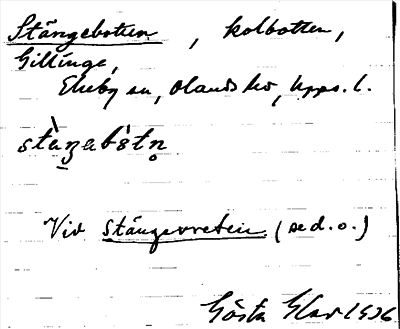 Stängebotten, kolbotten,
Gillinge,
Ekeby sn, Olands hd, Upps. l.
stàŋabòtn̥
Vid Stängsvreten (se d. o.)
Gösta 1936